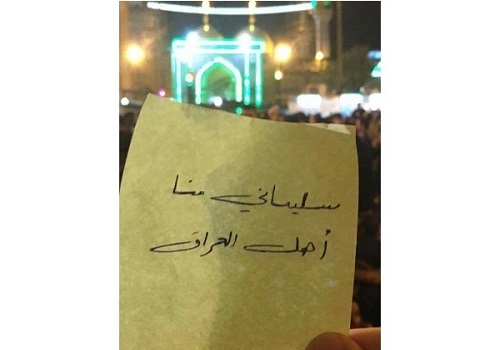 سليماني منا
أهل العراق